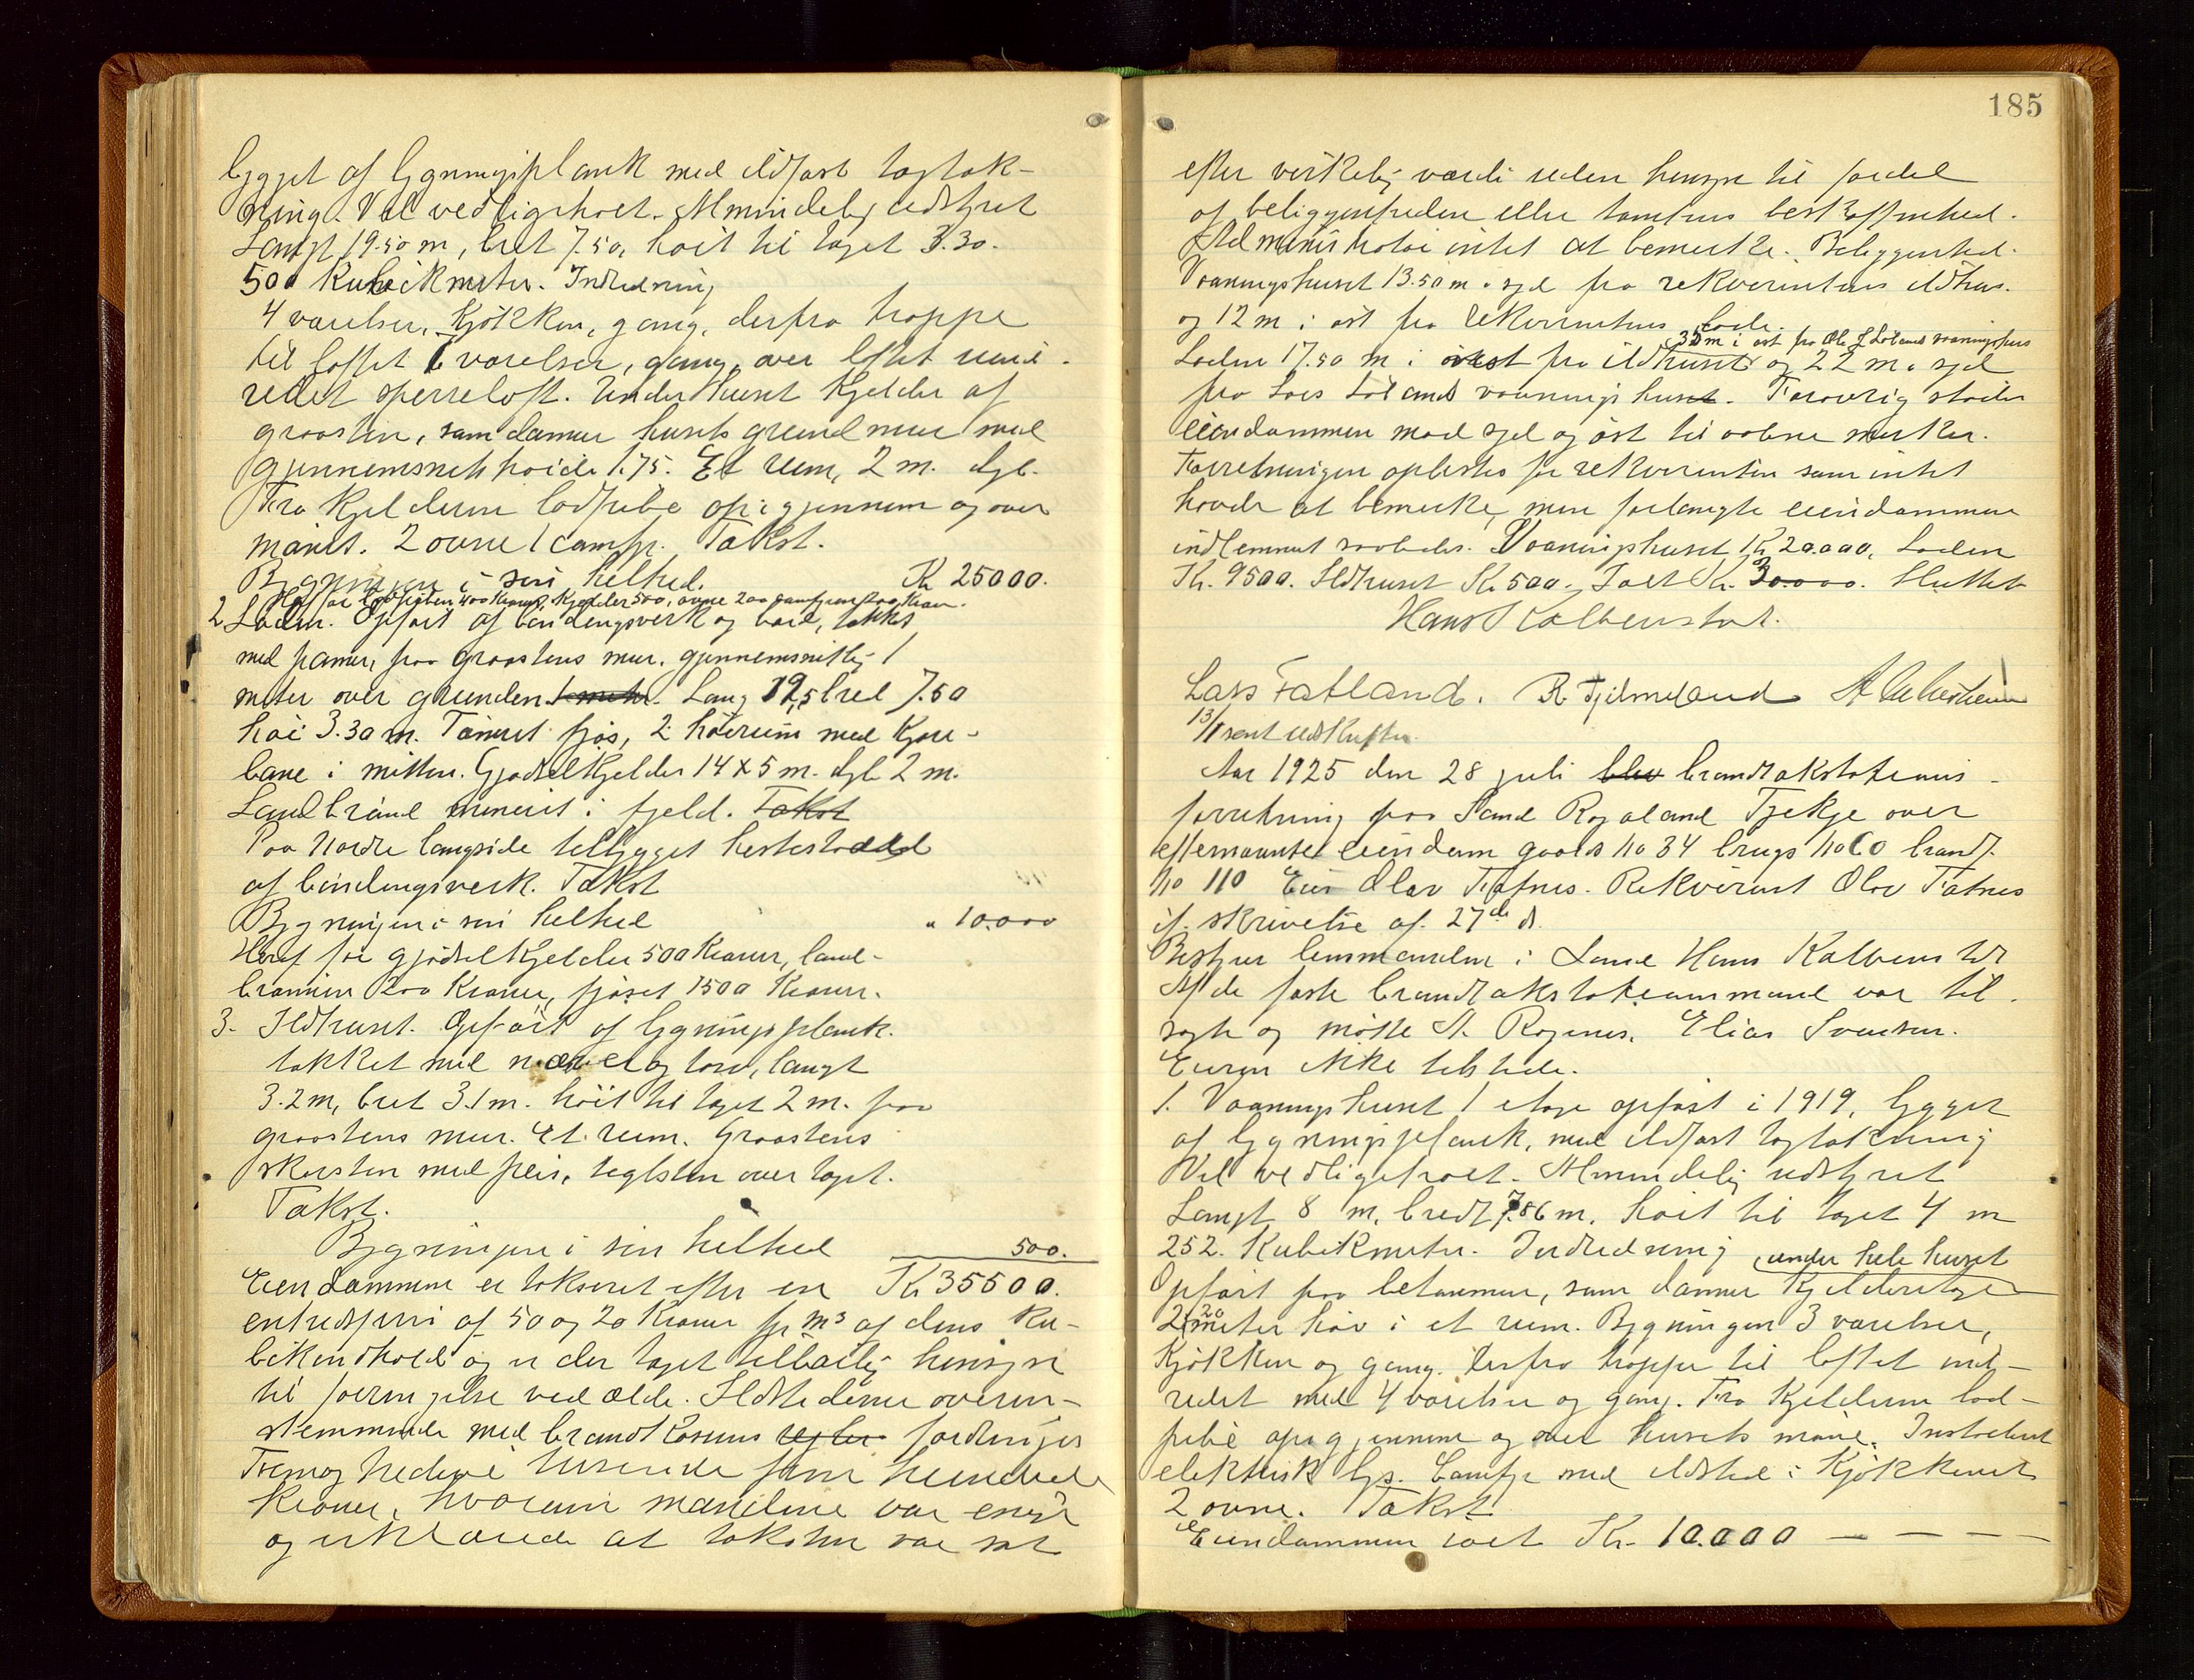 bygget af bygningsplank med ildfast tagtæk-
ning. Vel vedligeholt. Almindelig udstyret
Langt 19.50 m, bret 7.50, höit til taget 3.30.
500 Kubikmeter. Indredning
4 værelser, Kjökken, gang, derfra trappe
til loftet 6 værelser, gang, over loftet uind-
redet sperreloft. Under huset Kjelder af
graasten, som danner husets grundmur med
gjennemsnitshöide 1.75. Et rum, 2 m. dyb.
Fra Kjelderen lodpibe op igjennem og over
mönet. 2 ovne 1 camfyr. Takst.
Bygningen i sin helhed. Kr 25000.
Heraf for lodpiben 400 Kroner, Kjelder 500, ovne 200 camfyren 200 Kroner.
2 Loden. Opfört af bindingsverk og bord, tækket
med panner, paa graastens mur. gjennemsnitlig 1
meter over grunden. 1 meter Lang 19,5 bred 7.50
höi 3.30 m. Tömret fjös, 2 höirum med Kjöre-
bane i mitten. Gjödselkjelder 14 x 5 m. dyb 2 m.
Laudbrönd mineret i fjeld. Takst
Paa Nordre langside tilbygget hestestald
af bindingsverk. Takst
Bygningen i sin helhed " 10.000
Heraf for gjödselkjelder 500 Kroner, laud-
brönnen 200 Kroner, fjöset 1500 Kroner.
3. Ildhuset. Opfört af bygningsplank.
tækket med næver og torv, langt
3.2 m, bret 3.1 m. höit til taget 2 m. paa
graastens mur. Et rum. Graastens
skorsten med peis, teglsten over taget.
Takst.
Bygningen i sin helhed 500.
Eiendommen er takseret efter en Kr 35500.
enhedspris af 50 og 20 Kroner pr m3 af dens Ku-
bikindhold og er der taget tilbörlig hensyn
til forringelse ved ælde. Ildstederne overen-
stemmende med brandkassens regler fordringer
Fem og tredive tusende fem hundrede
Kroner, hvorom mændene var enige
og erklærede at taksten var sat
185
efter virkelig værdi uden hensyn til fordel
af beliggenheden eller tomtens beskaffenhed.
Administrator intet at bemerke. Beliggenhed.
Vaaningshuset 13.50 m. syd fra rekvirentens ildhus.
og 12 m. i öst fra rekvirentens lode.
35 m i öst fra Ole J Löland vaaningshus
Loden 17.50 m i vest fra ildhuset og 22 m. syd
fra Lars Löland vaaningshuset. Forövrig stöder
eiendommen mod syd og öst til aabne marker.
Forretningen oplestes for rekvirenten som intet
havde at bemerke, men forlangte eiendommen
indlemmet saaledes. Vaaningshuset Kr 20.000, Loden
Kr. 9500. Ildhuset Kr 500. Ialt Kr. 30.000. Sluttet
Hans Kolbenstvedt.
Lars Fatland. R. Fjelmeland
13/1 sent udskrifter.
Aar 1925 den 28 juli blev brandtakstations-
forretning paa Sand Rogaland Fylke over
eftermævnte eiendom gaards no 34 brugs no 60 brandf.
no 110 Eier Olav Fatnes. Rekvirent Olav Fatnes
if. skrivelse af. 27de ds.
Bestyrer lensmanden i Sand Hans Kolbenstvdt
Af de faste brandtakstationsmænd var til-
sagte og mötte A. Rognes, Elias Svendsen.
Eieren ikke tilstede.
1. Vaaningshuset 1 etage opfört i 1919, bygget
af bygningsplank, med ildfast tagtækning
Vel vedligeholt. Almindelig udstyret
Langt 8 m, bredt 7.86 m, höit til taget 4 m
252. Kubikmeter. Indredning
under hele huset
Opfört paa betonmur, som danner Kjelderetage
2.20 meter höi i et rum. Bygningen 3 værelser,
Kjökken og gang. Derfra trappe til loftet ind-
redet med 4 værelser og gang. Fra Kjelderen lod-
pibe op igjennem og over husets möne. Instaleret
elektrisk lys. Camfyr med ildsted i Kjökkenet
2 ovne. Takst
Eiendommen ialt Kr. 10.000 — — — —